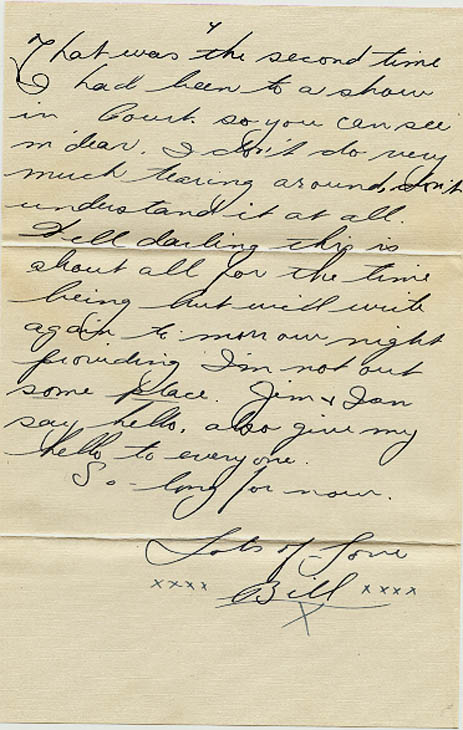 4
That was the second time
I had been to a show
in Court. so you can see
m'dear. I don't do very
much tearing around, don't
understand it at all.
Well darling this is
about all for the time
being but will write
again to-morrow night
providing I'm not out
some place. Jim & Ian
say hello, also give my
hello to everyone.
So-long for now.
Lots of Love
xxxx Bill xxxx
X